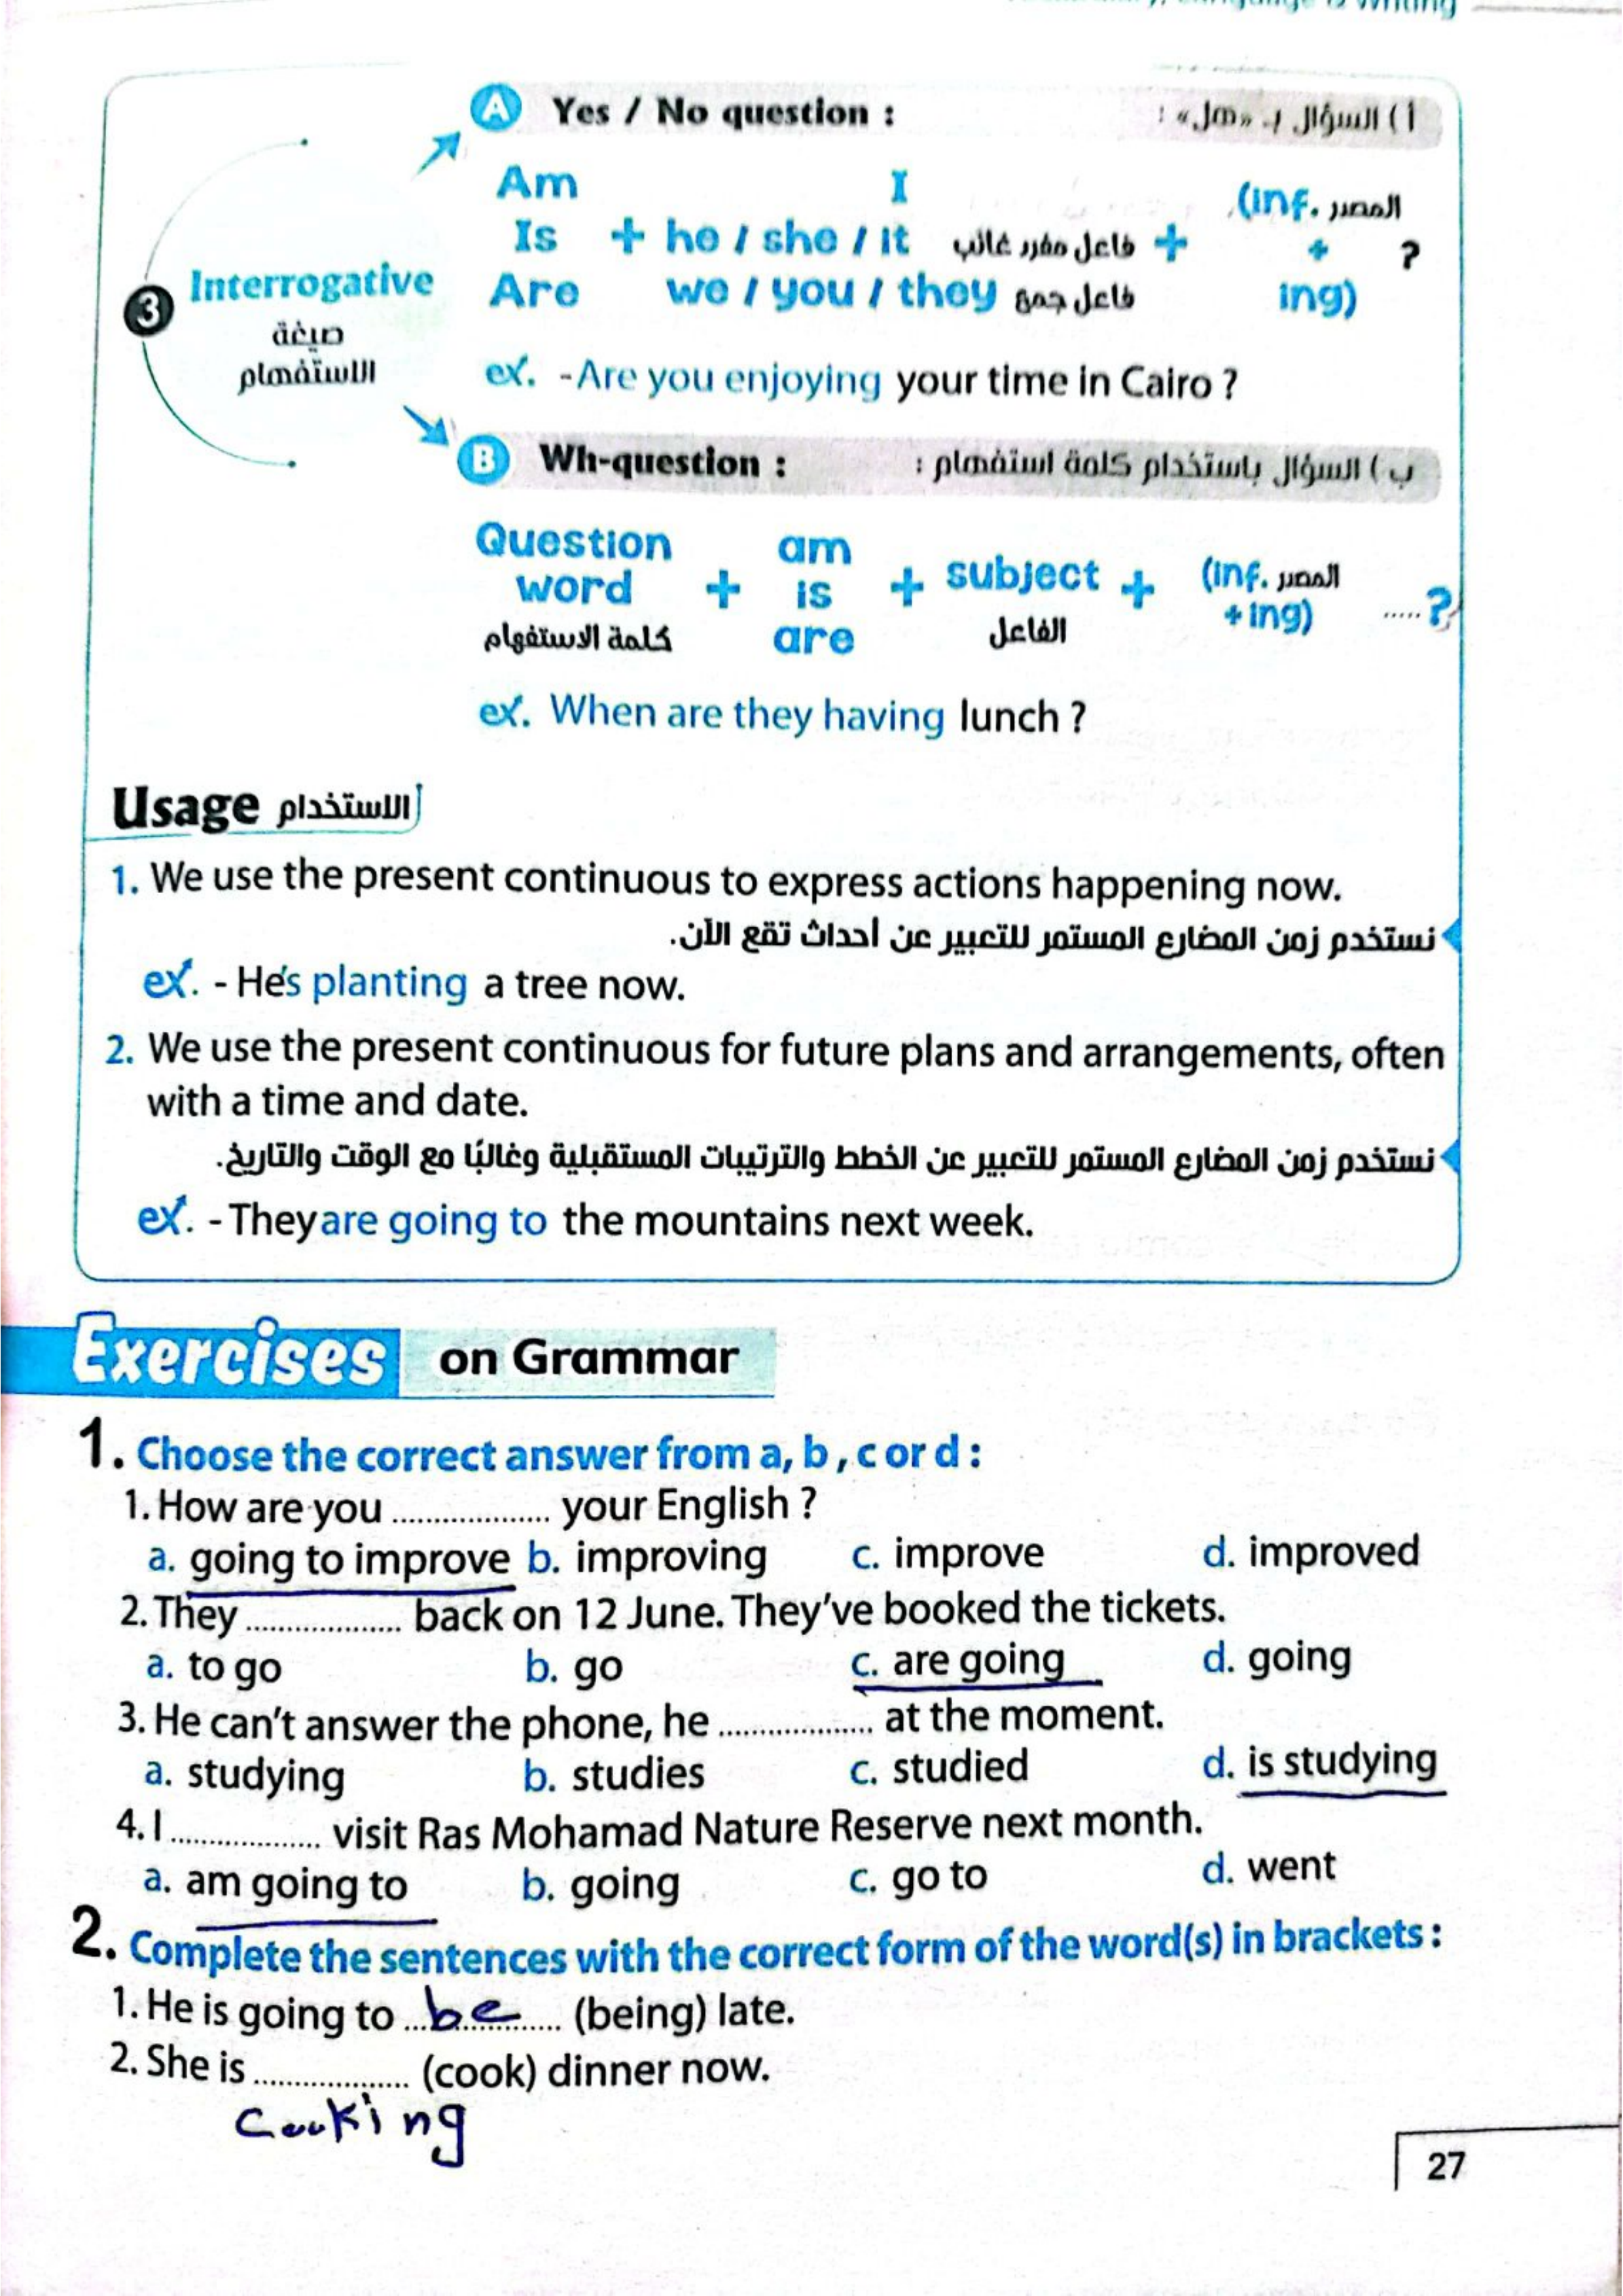 is Writing
A Yes / No question : أ ) السؤال بـ «هل» :
Am I (inf. المصدر
Is + he / she / it فاعل مفرد غائب + + ?
Are we / you / they فاعل جمع ing)
3 Interrogative
صيغة
الاستفهام
ex. - Are you enjoying your time in Cairo ?
B Wh-question : ب ) السؤال باستخدام كلمة استفهام :
Question am
word + is + subject + (inf. المصدر .....?
كلمة الاستفهام are الفاعل +ing)
ex. When are they having lunch ?
Usage الاستخدام
1. We use the present continuous to express actions happening now.
نستخدم زمن المضارع المستمر للتعبير عن أحداث تقع الآن.
ex. - He's planting a tree now.
2. We use the present continuous for future plans and arrangements, often
with a time and date.
نستخدم زمن المضارع المستمر للتعبير عن الخطط والترتيبات المستقبلية وغالبًا مع الوقت والتاريخ.
ex. - They are going to the mountains next week.
Exercises on Grammar
1. Choose the correct answer from a, b , c or d :
1. How are you .................. your English ?
a. going to improve b. improving c. improve d. improved
2. They .................. back on 12 June. They've booked the tickets.
a. to go b. go c. are going d. going
3. He can't answer the phone, he .................. at the moment.
a. studying b. studies c. studied d. is studying
4. I .................. visit Ras Mohamad Nature Reserve next month.
a. am going to b. going c. go to d. went
2. Complete the sentences with the correct form of the word(s) in brackets :
1. He is going to ...be............ (being) late.
2. She is .................. (cook) dinner now.
Cooking
27